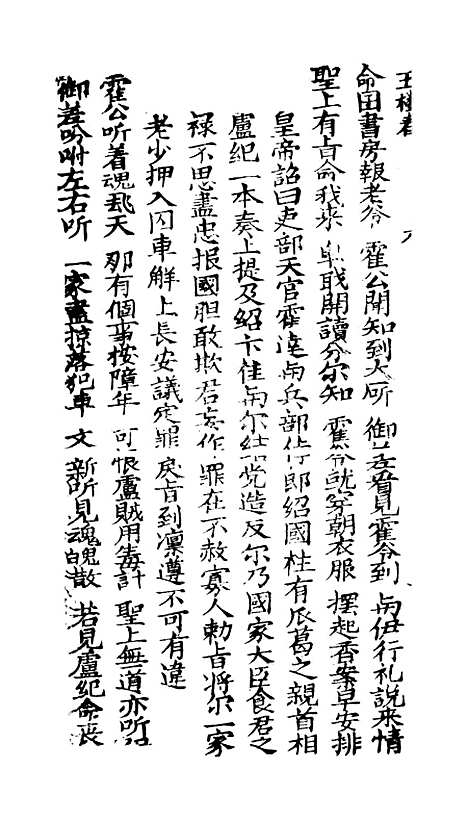 玉樓春
命囬書房報老爷 霍公開知到大所 御差看見霍令到 与伊行礼說来情
聖上有貞命我来 自取開讀分尔知 霍爷就穿朝衣服 擺起香案草安排
皇帝詔曰吏部天官霍逵与兵部侍郎紹國柱有瓜葛之親首相
盧紀一本奏上提及紹卞佳与尔结党造反尔乃國家大臣食君之
禄不思盡忠报國胆敢欺君妄作罪在不赦寡人勅旨将尔一家
老少押入囚車解上長安議定罪 旨到凛遵不可有違
霍公听着魂飛天 那有個事按障年 可恨盧賊用毒計 聖上無道亦听
御差吩咐左右听 一家盡掠落犯車 文 新所見魂魄散 若見盧紀命喪